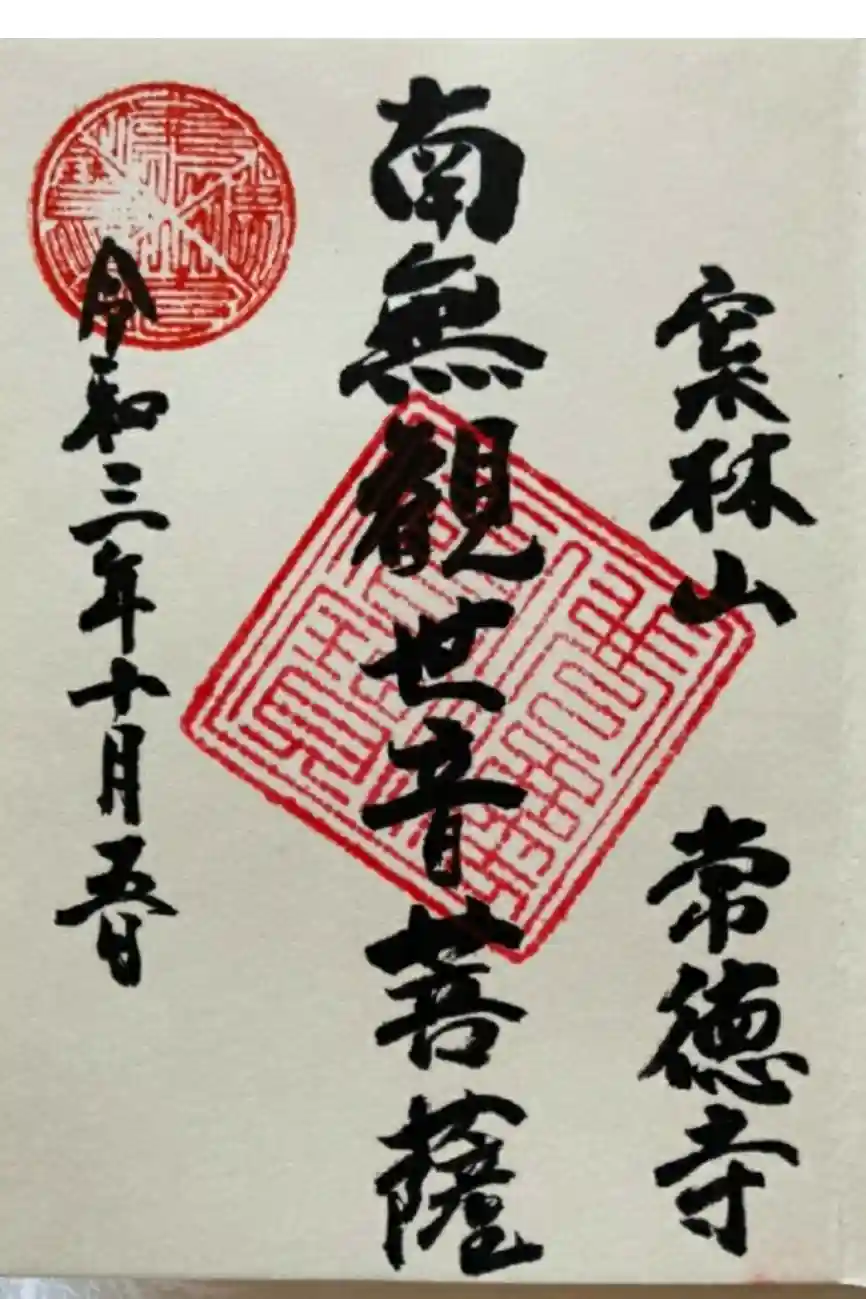 林山 常徳寺
南無観世音菩薩
令和三年十月五日